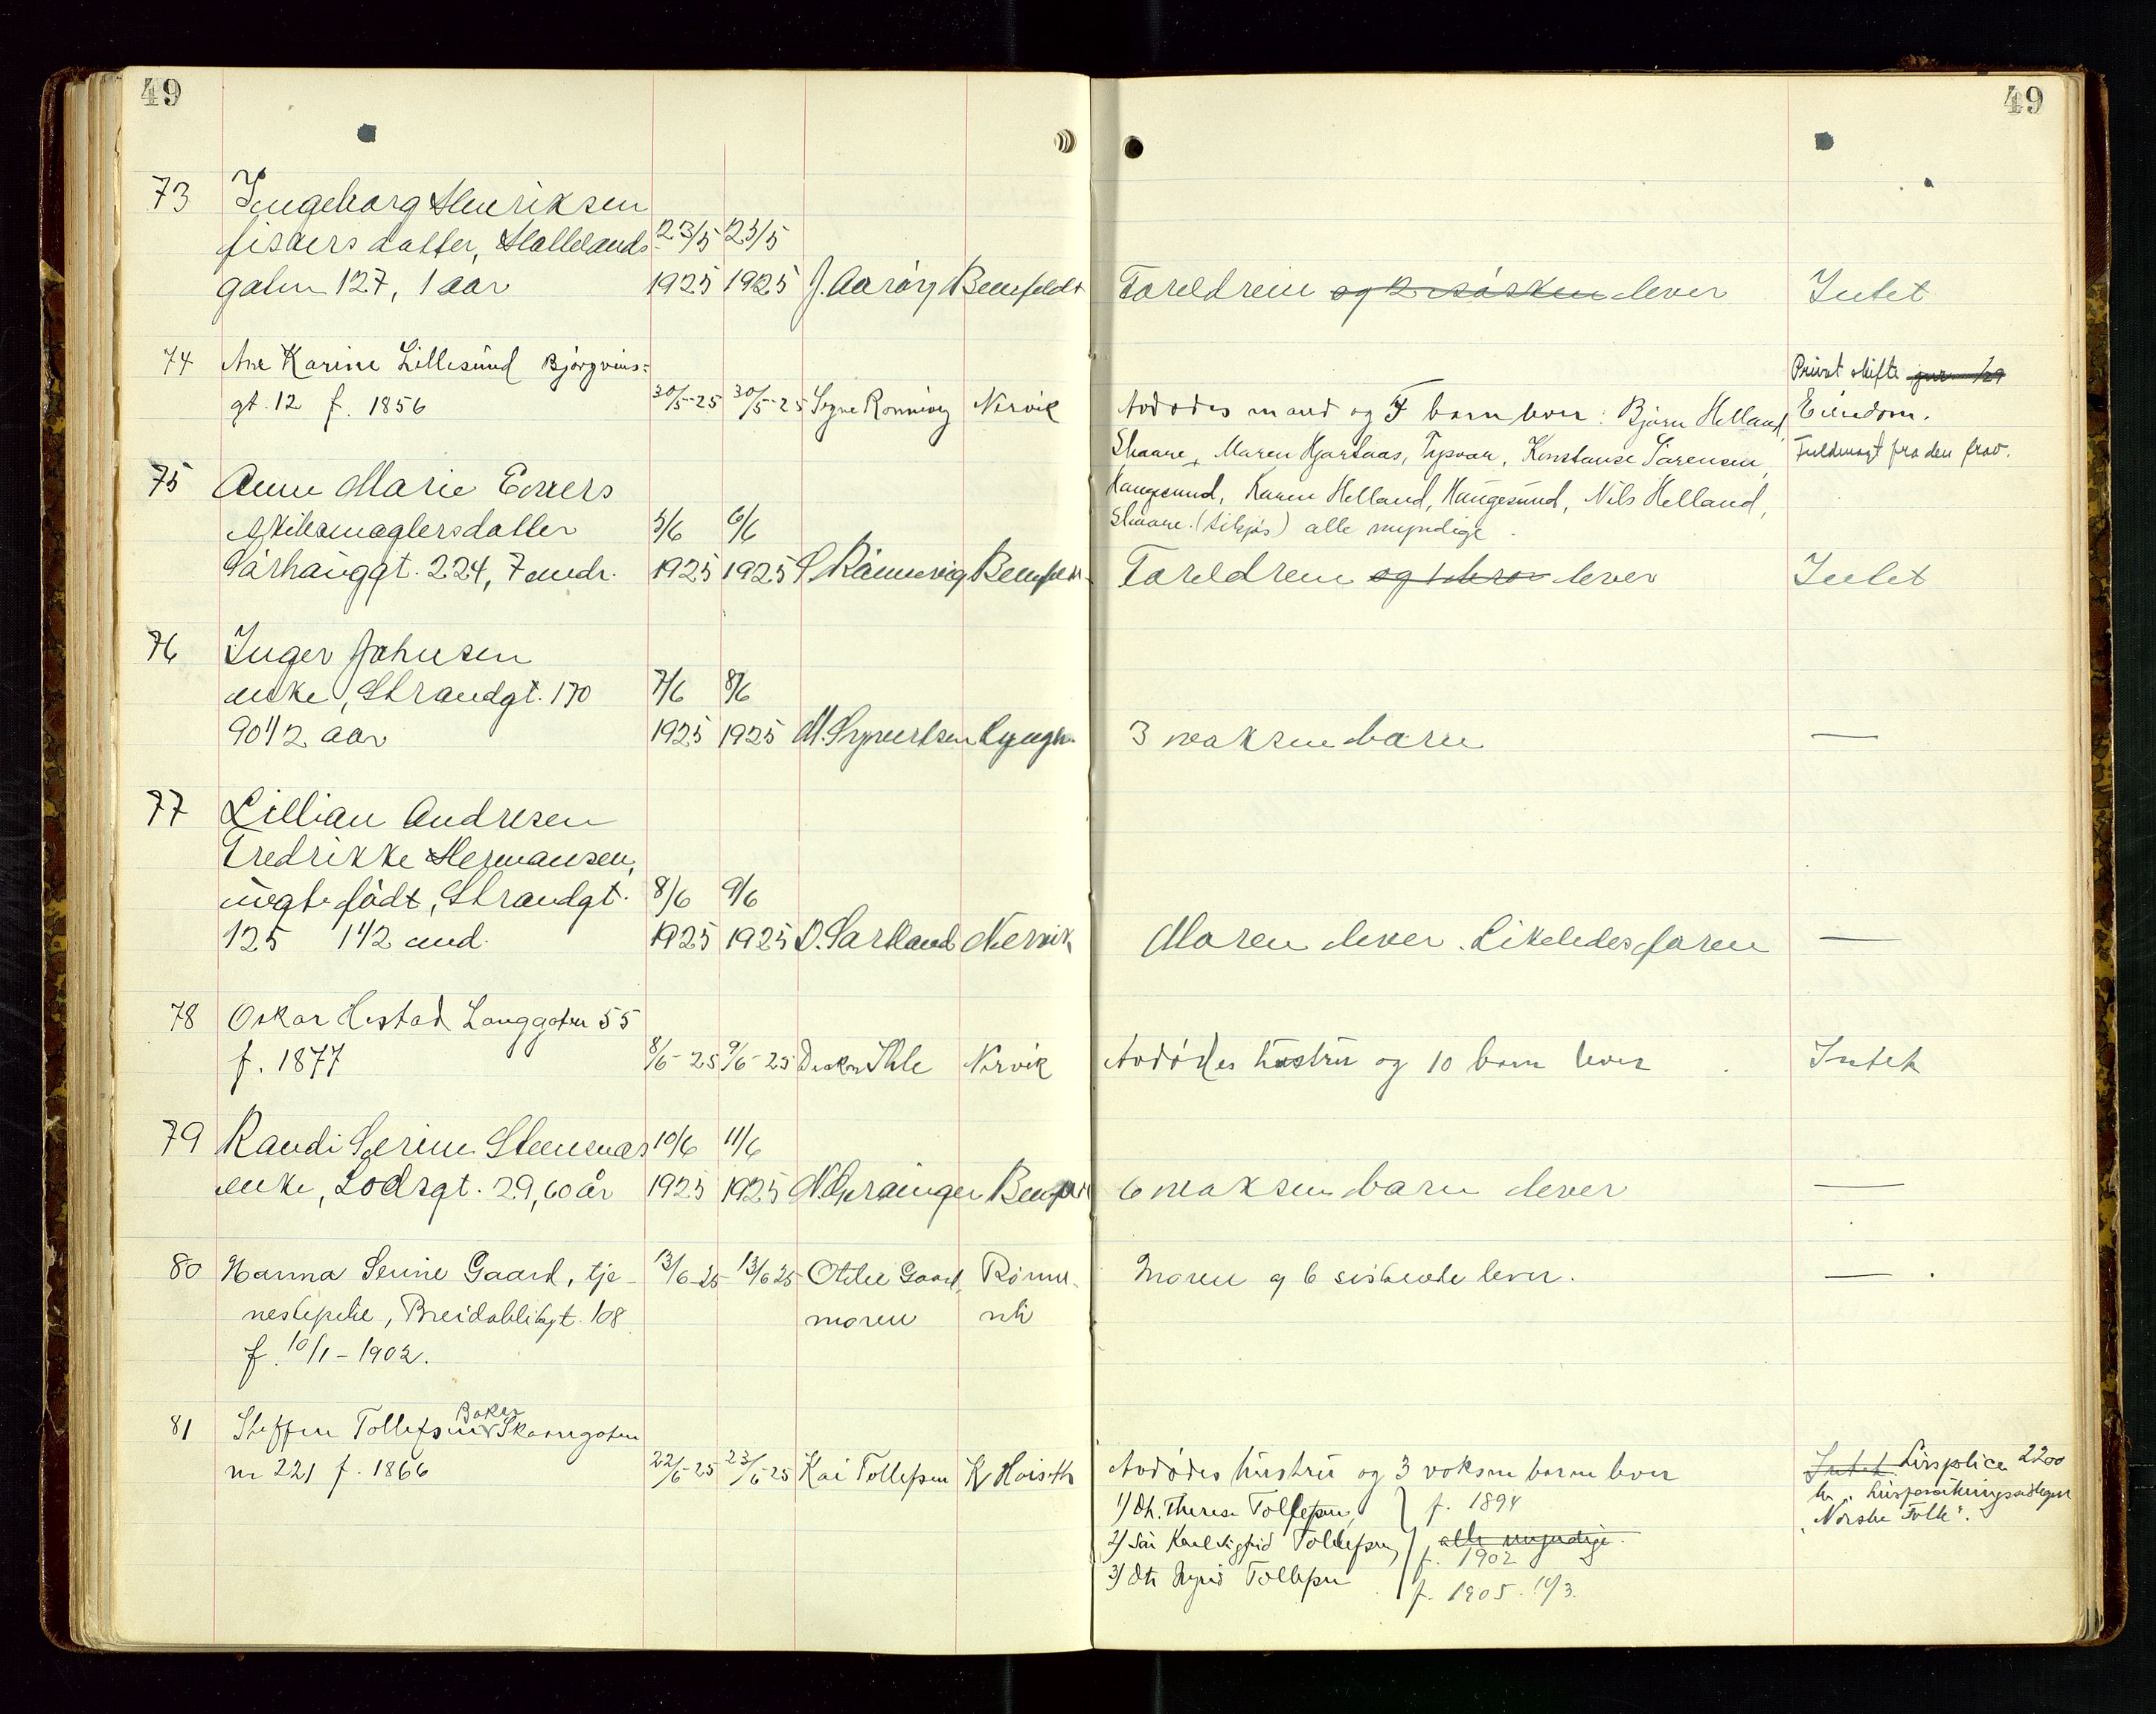 49
49
73 Ingeborg Henriksen
fiskers datter, Hallelands
gaten 127, 1 aar
23/5 1925
23/5 1925
J. Aarøy
Bentfeldt
Forældrene og 2 søsken lever
Intet
74 Ane Karine Lillesund Bjørgvins-
gt. 12 f. 1856
30/5-25
30/5-25
Signe Rønnevig
Nervik
Avdødes mand og 5 barn lever: Bjørn Helland,
Skaare, Maren Hjortaas, Tysvær, Konstanse Sørensen,
Haugesund, Karen Helland, Haugesund, Nils Helland,
Skaare. (tilsjøs) alle myndige.
Privat skifte
Eiendom.
Fuldmagt fra den frav.
75 Anne Marie Evers
skibsmæglersdatter
Sørhauggt. 224, 7 mdr.
5/6 1925
6/6 1925
S. Rønnevig
Forældrene og 1 bror lever
Intet
76 Inger Johnsen
enke, Strandgt. 170
90 1/2 aar
7/6 1925
8/6 1925
M. Syvertsen
3 voksne barn
—
77 Lillian Andresen
Fredrikke Hermansen,
uegte født, Strandgt.
125 1 1/2 mnd.
8/6 1925
9/6 1925
Nervik
Moren lever. Likeledes faren
—
78 Oskar Hestad Langgaten 55
f. 1877
8/6-25
9/6-25
Diakon Ihle
Nervik
Avdødes hustru og 10 barn lever
Intet
79 Randi Serine Steensnæs
enke, Lodsgt. 29, 60 år
10/6 1925
11/6 1925
6 voksne barn lever
—
80 Hanna Serine Gaard, tje-
nestepike, Breidablikgt. 108
f. 10/1-1902.
13/6-25
13/6 25
Otilie Gaard,
moren
Moren og 6 søskende lever.
— .
81 Steffen Tollefsen Baker Skaaregaten
nr 221 f. 1866
22/6-25
23/6-25
Kai Tollefsen
Avdødes hustru og 3 voksne barn lever
1) Dt. Therese Tollefsen, f. 1894
2) Søn Karl Sigfrid Tollefsen, alle myndige. f. 1902
3) Dtr Ingrid Tollefsen f. 1905. 10/3.
Intet. Livspolice 2200
kr. i livsforsikringsselskapet
"Norske Folk".